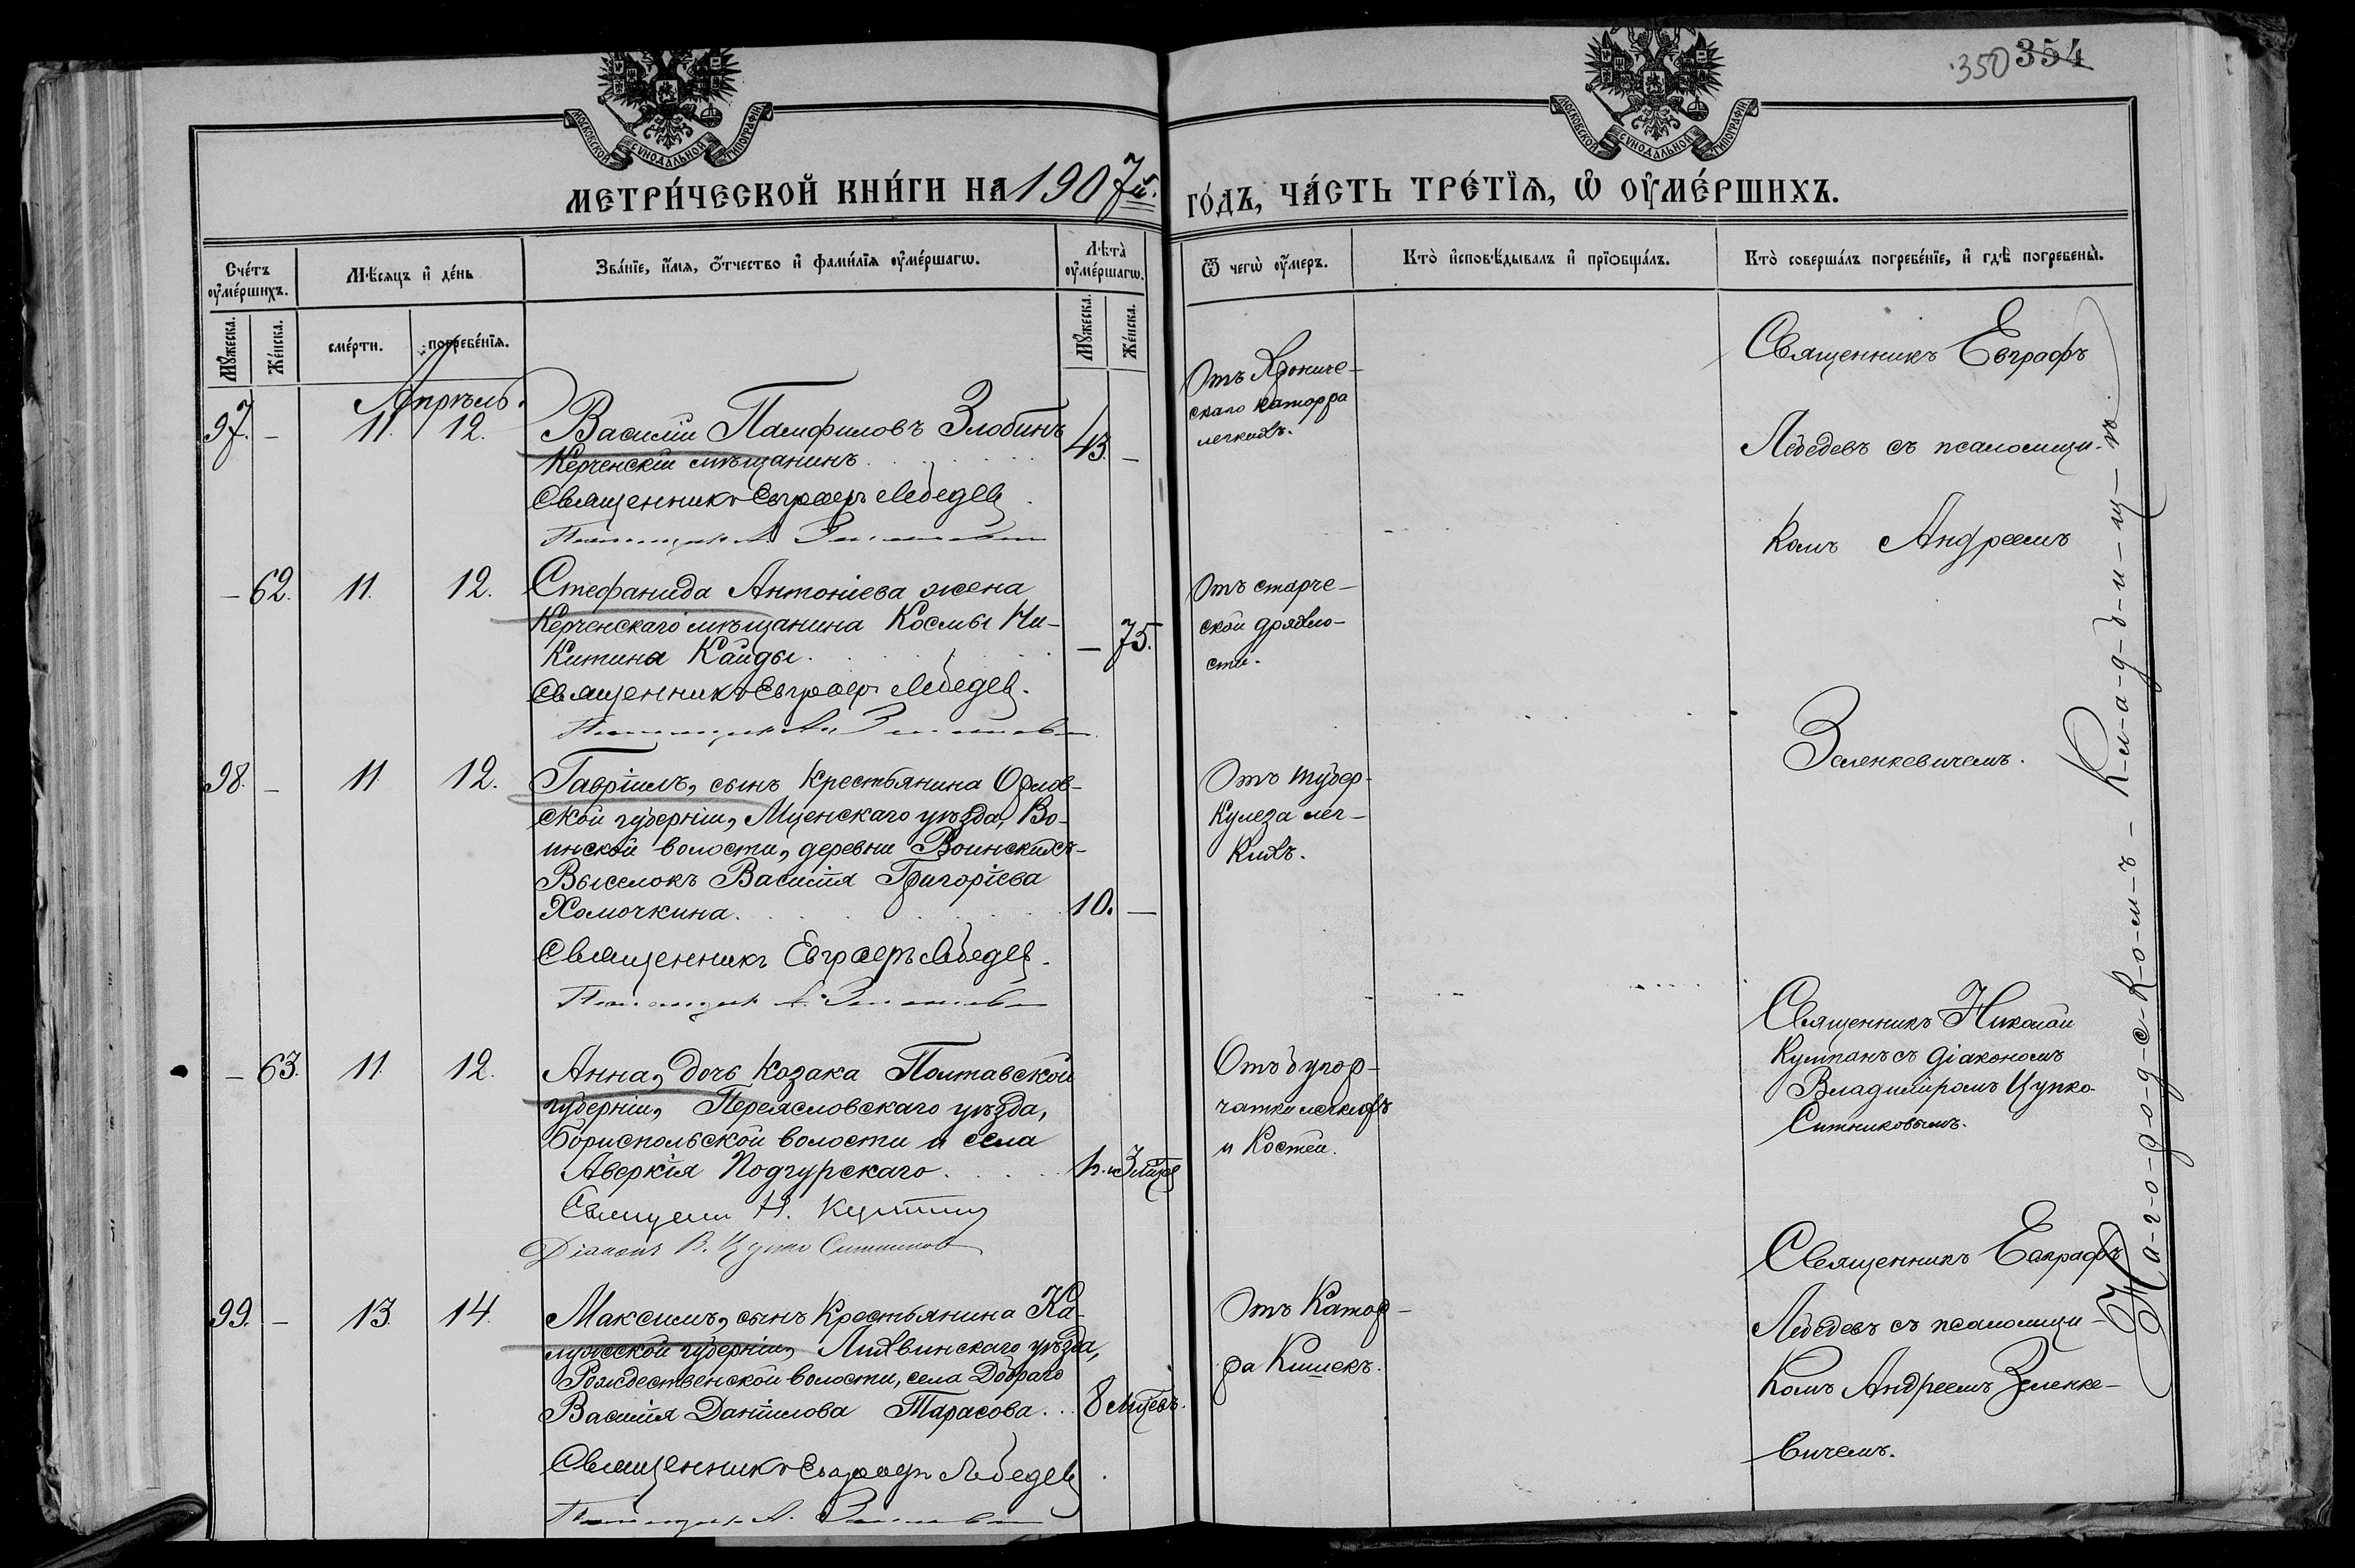 350 354
МОСКОВСКОЙ СѴНОДАЛЬНОЙ ТИПОГРАФІИ
МОСКОВСКОЙ СѴНОДАЛЬНОЙ ТИПОГРАФІИ
МЕТРИ́ЧЕСКОЙ КНИ́ГИ НА 1907й. ГО́ДЪ, ЧА́СТЬ ТРЕ́ТЇѦ, Ѡ҆ ОУ҆МЕ́РШИХЪ.
Сче́тъ оу҆ме́ршихъ.
Мѣ́сяцъ и҆ де́нь
Зва́нїе, и҆́мѧ, ѻ҆́тчество и҆ фами́лїѧ оу҆ме́ршагѡ.
Лѣта̀ оу҆ме́ршагѡ.
Ѿ чегѡ̀ оу҆́меръ.
Кто̀ и҆сповѣ́дывалъ и҆ прїѡбща́лъ.
Кто̀ соверша́лъ погребе́нїе, и҆ гдѣ̀ погребены̀.
Мꙋ́жеска.
Же́нска.
сме́рти.
погребе́нїѧ.
Мꙋ́жеска.
Же́нска.
Апрѣль.
97. – 11. 12. Василій Памфиловъ Злобинъ 43. –
Керченскій мѣщанинъ
Священникъ Евграфъ Лебедевъ
Отъ хрониче-
скаго катарра
легкихъ.
Священникъ Евграфъ
Лебедевъ съ псаломщи-
комъ Андреемъ
Зеленкевичемъ.
– 62. 11. 12. Стефанида Антоніева жена
Керченскаго мѣщанина Космы Ни-
китина Кайды. – 75.
Священникъ Евграфъ Лебедевъ.
Отъ старче-
ской дряхло-
сти.
98. – 11. 12. Гавріилъ, сынъ крестьянина Орлов-
ской губерніи, Мценскаго уѣзда, Во-
инской волости, деревни Воинскихъ-
Выселокъ Василія Григоріева
Хомочкина. 10. –
Священникъ Евграфъ Лебедевъ.
Отъ тубер-
кулеза лег-
кихъ.
– 63. 11. 12. Анна, дочь козака Полтавской
губерніи, Переясловскаго уѣзда,
Бориспольской волости и села
Аверкія Подгурскаго
Священ Н. Кулпанъ
Діаконъ В. Цупко Ситниковъ
Отъ бугор-
чатки легкихъ
и костей.
Священникъ Николай
Кулпанъ съ діакономъ
Владимиромъ Цупко-
Ситниковымъ.
99. – 13. 14. Максимъ, сынъ крестьянина Ка-
лужской губерніи, Лихвинскаго уѣзда,
Рождественской волости, села Добраго
Василія Даніилова Тарасова. 8 мцевъ.
Священникъ Евграфъ Лебедевъ
Отъ катар-
ра кишекъ.
Священникъ Евграфъ
Лебедевъ съ псаломщи-
комъ Андреемъ Зеленке-
вичемъ.
На-г-о-р-о-д-с-к-о-м-ъ - к-л-а-д-б-и-щ-ѣ.